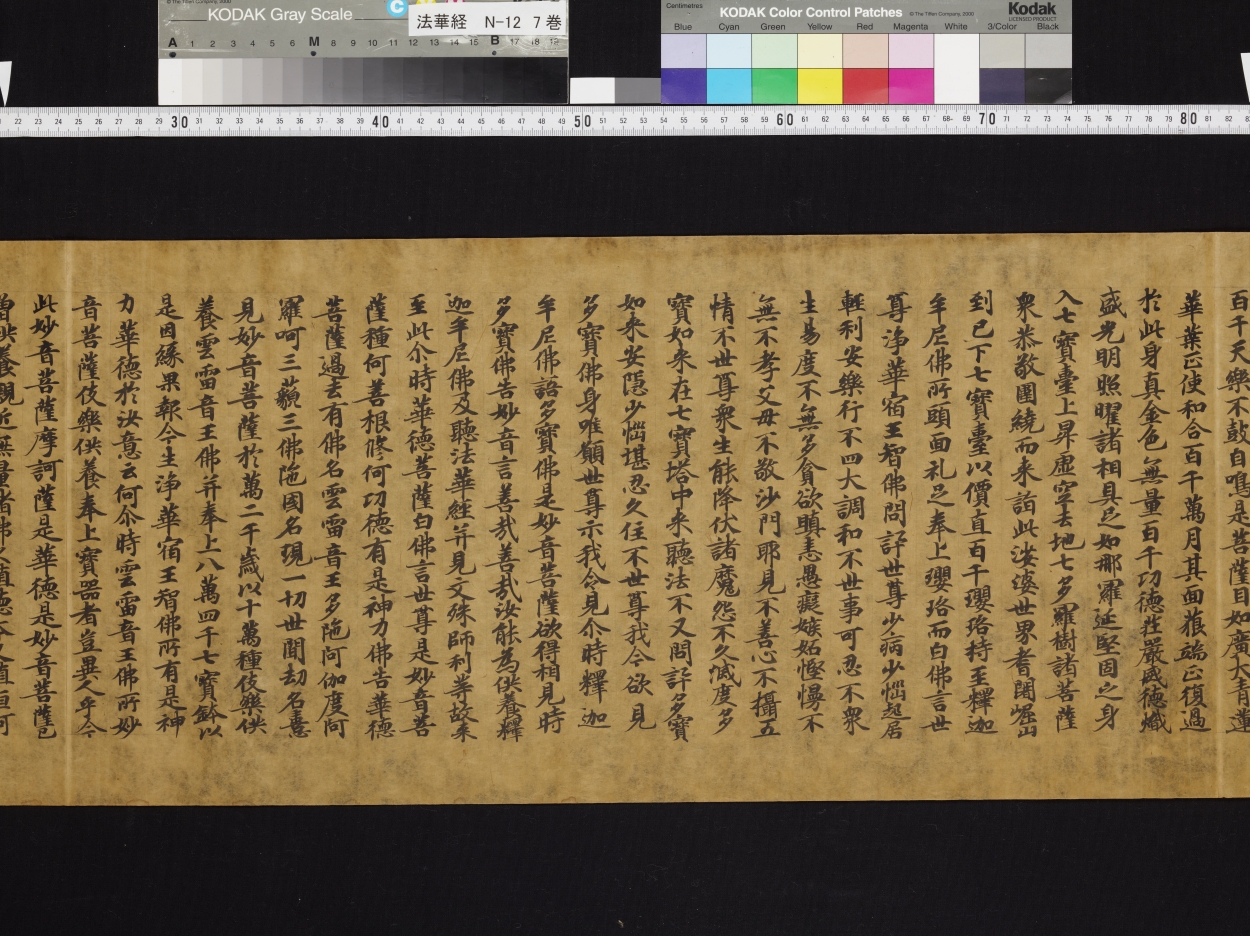 KODAK Gray Scale
法華経 N-12 7巻
A 1 2 3 4 5 6 M 8 9 10 11 12 13 14 15 B 17 18 19
Centimetres
KODAK Color Control Patches
© The Tiffen Company, 2000
Kodak
LICENSED PRODUCT
Blue Cyan Green Yellow Red Magenta White 3/Color Black
22 23 24 25 26 27 28 29 30 31 32 33 34 35 36 37 38 39 40 41 42 43 44 45 46 47 48 49 50 51 52 53 54 55 56 57 58 59 60 61 62 63 64 65 66 67 68 69 70 71 72 73 74 75 76 77 78 79 80 81 82
百千天樂不鼓自鳴是菩薩目如廣大青蓮
華葉正使和合百千萬月其面㒵端正復過
於此身真金色無量百千功德莊嚴威德熾
盛光明照曜諸相具足如那羅延堅固之身
入七寶臺上昇虛空去地七多羅樹諸菩薩
衆恭敬圍繞而来詣此娑婆世界耆闍崛山
到已下七寶臺以價直百千瓔珞持至釋迦
牟尼佛所頭面礼足奉上瓔珞而白佛言世
尊淨華宿王智佛問訊世尊少病少惱起居
輕利安樂行不四大調和不世事可忍不衆
生易度不無多貪欲瞋恚愚癡嫉妬慳慢不
無不孝父母不敬沙門耶見不善心不攝五
情不世尊衆生能降伏諸魔怨不久滅度多
寶如来在七寶塔中来聽法不又問訊多寶
如来安隱少惱堪忍久住不世尊我今欲見
多寶佛身唯願世尊示我令見尒時釋迦
牟尼佛語多寶佛是妙音菩薩欲得相見時
多寶佛告妙音言善哉善哉汝能為供養釋
迦牟尼佛及聽法華經并見文殊師利等故来
至此尒時華德菩薩白佛言世尊是妙音菩
薩種何善根修何功德有是神力佛告華德
菩薩過去有佛名雲雷音王多陁阿伽度阿
羅呵三藐三佛陁國名現一切世間劫名憙
見妙音菩薩於萬二千歲以十萬種伎樂供
養雲雷音王佛并奉上八萬四千七寶鉢以
是因緣果報今生淨華宿王智佛所有是神
力華德於汝意云何尒時雲雷音王佛所妙
音菩薩伎樂供養奉上寶器者豈異人乎今
此妙音菩薩摩訶薩是華德是妙音菩薩已
曾供養親近無量諸佛久殖德本又值恒河